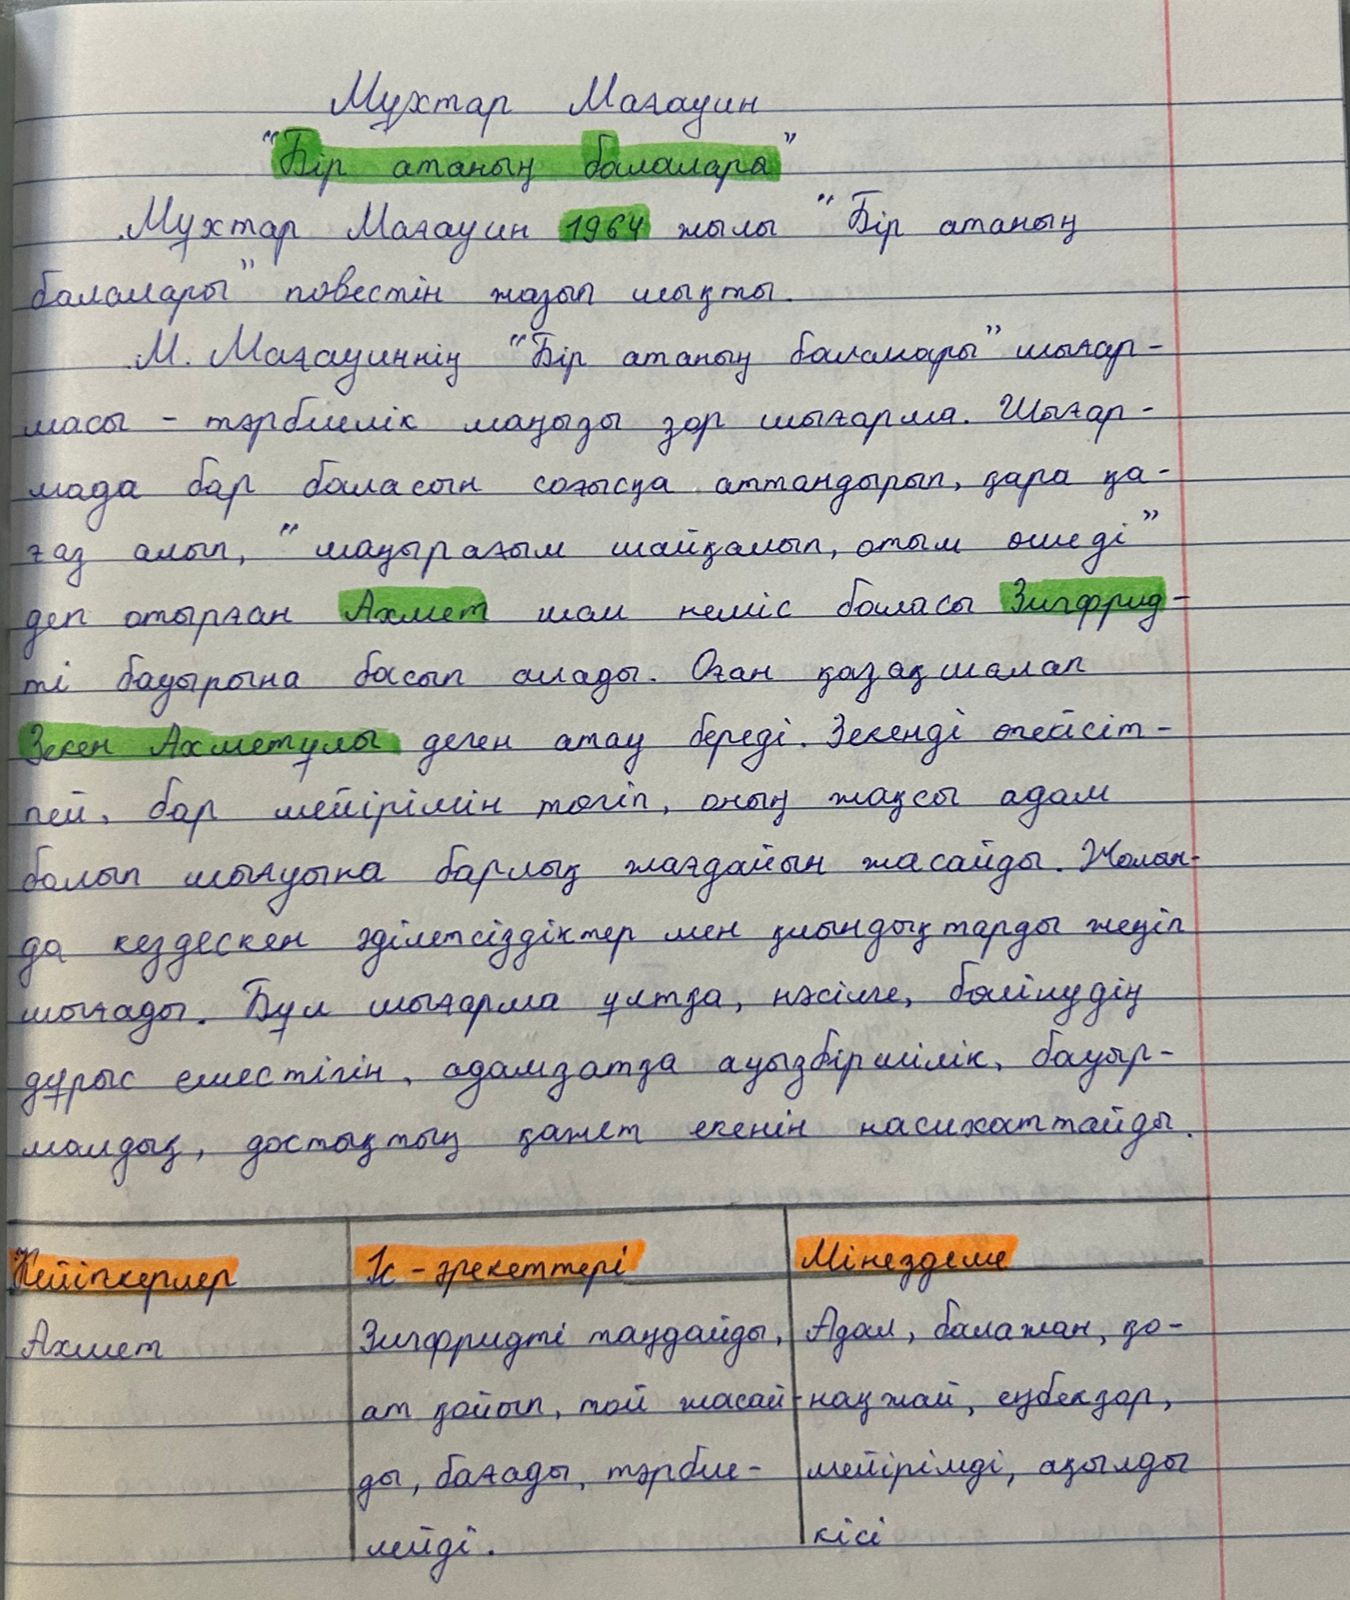 Мұхтар Мағауин
"Бір атаның балалары"
Мұхтар Мағауин 1964 жылы "Бір атаның
балалары" повестін жазып шықты.
М. Мағауиннің "Бір атаның балалары" шығар-
масы - тәрбиелік маңызы зор шығарма. Шығар-
мада бар баласын соғысқа аттандырып, қара қа-
ғаз алып, "шаңырағым шайқалып, отым өшеді"
деп отырған Ахмет шал неміс баласы Зигфрид-
ті бауырына басып алады. Оған қазақшалап
Зекен Ахметұлы деген атау береді. Зекенді өгейсіт-
пей, бар мейірімін төгіп, оның жақсы адам
болып шығуына барлық жағдайын жасайды. Жолын-
да кездескен әділетсіздіктер мен қиындықтарды жеңіп
шығады. Бұл шығарма ұлтқа, нәсілге, бөлінудің
дұрыс еместігін, адамзатқа ауызбіршілік, бауыр-
малдық, достықтың қажет екенін насихаттайды.
Кейіпкерлер Іс-әрекеттері Мінездеме
Ахмет Зигфридті таңдайды, Адал, балажан, қо-
ат қойып, той жасай- нақжай, еңбекқор,
ды, бағады, тәрбие- мейірімді, ақылды
лейді. кісі